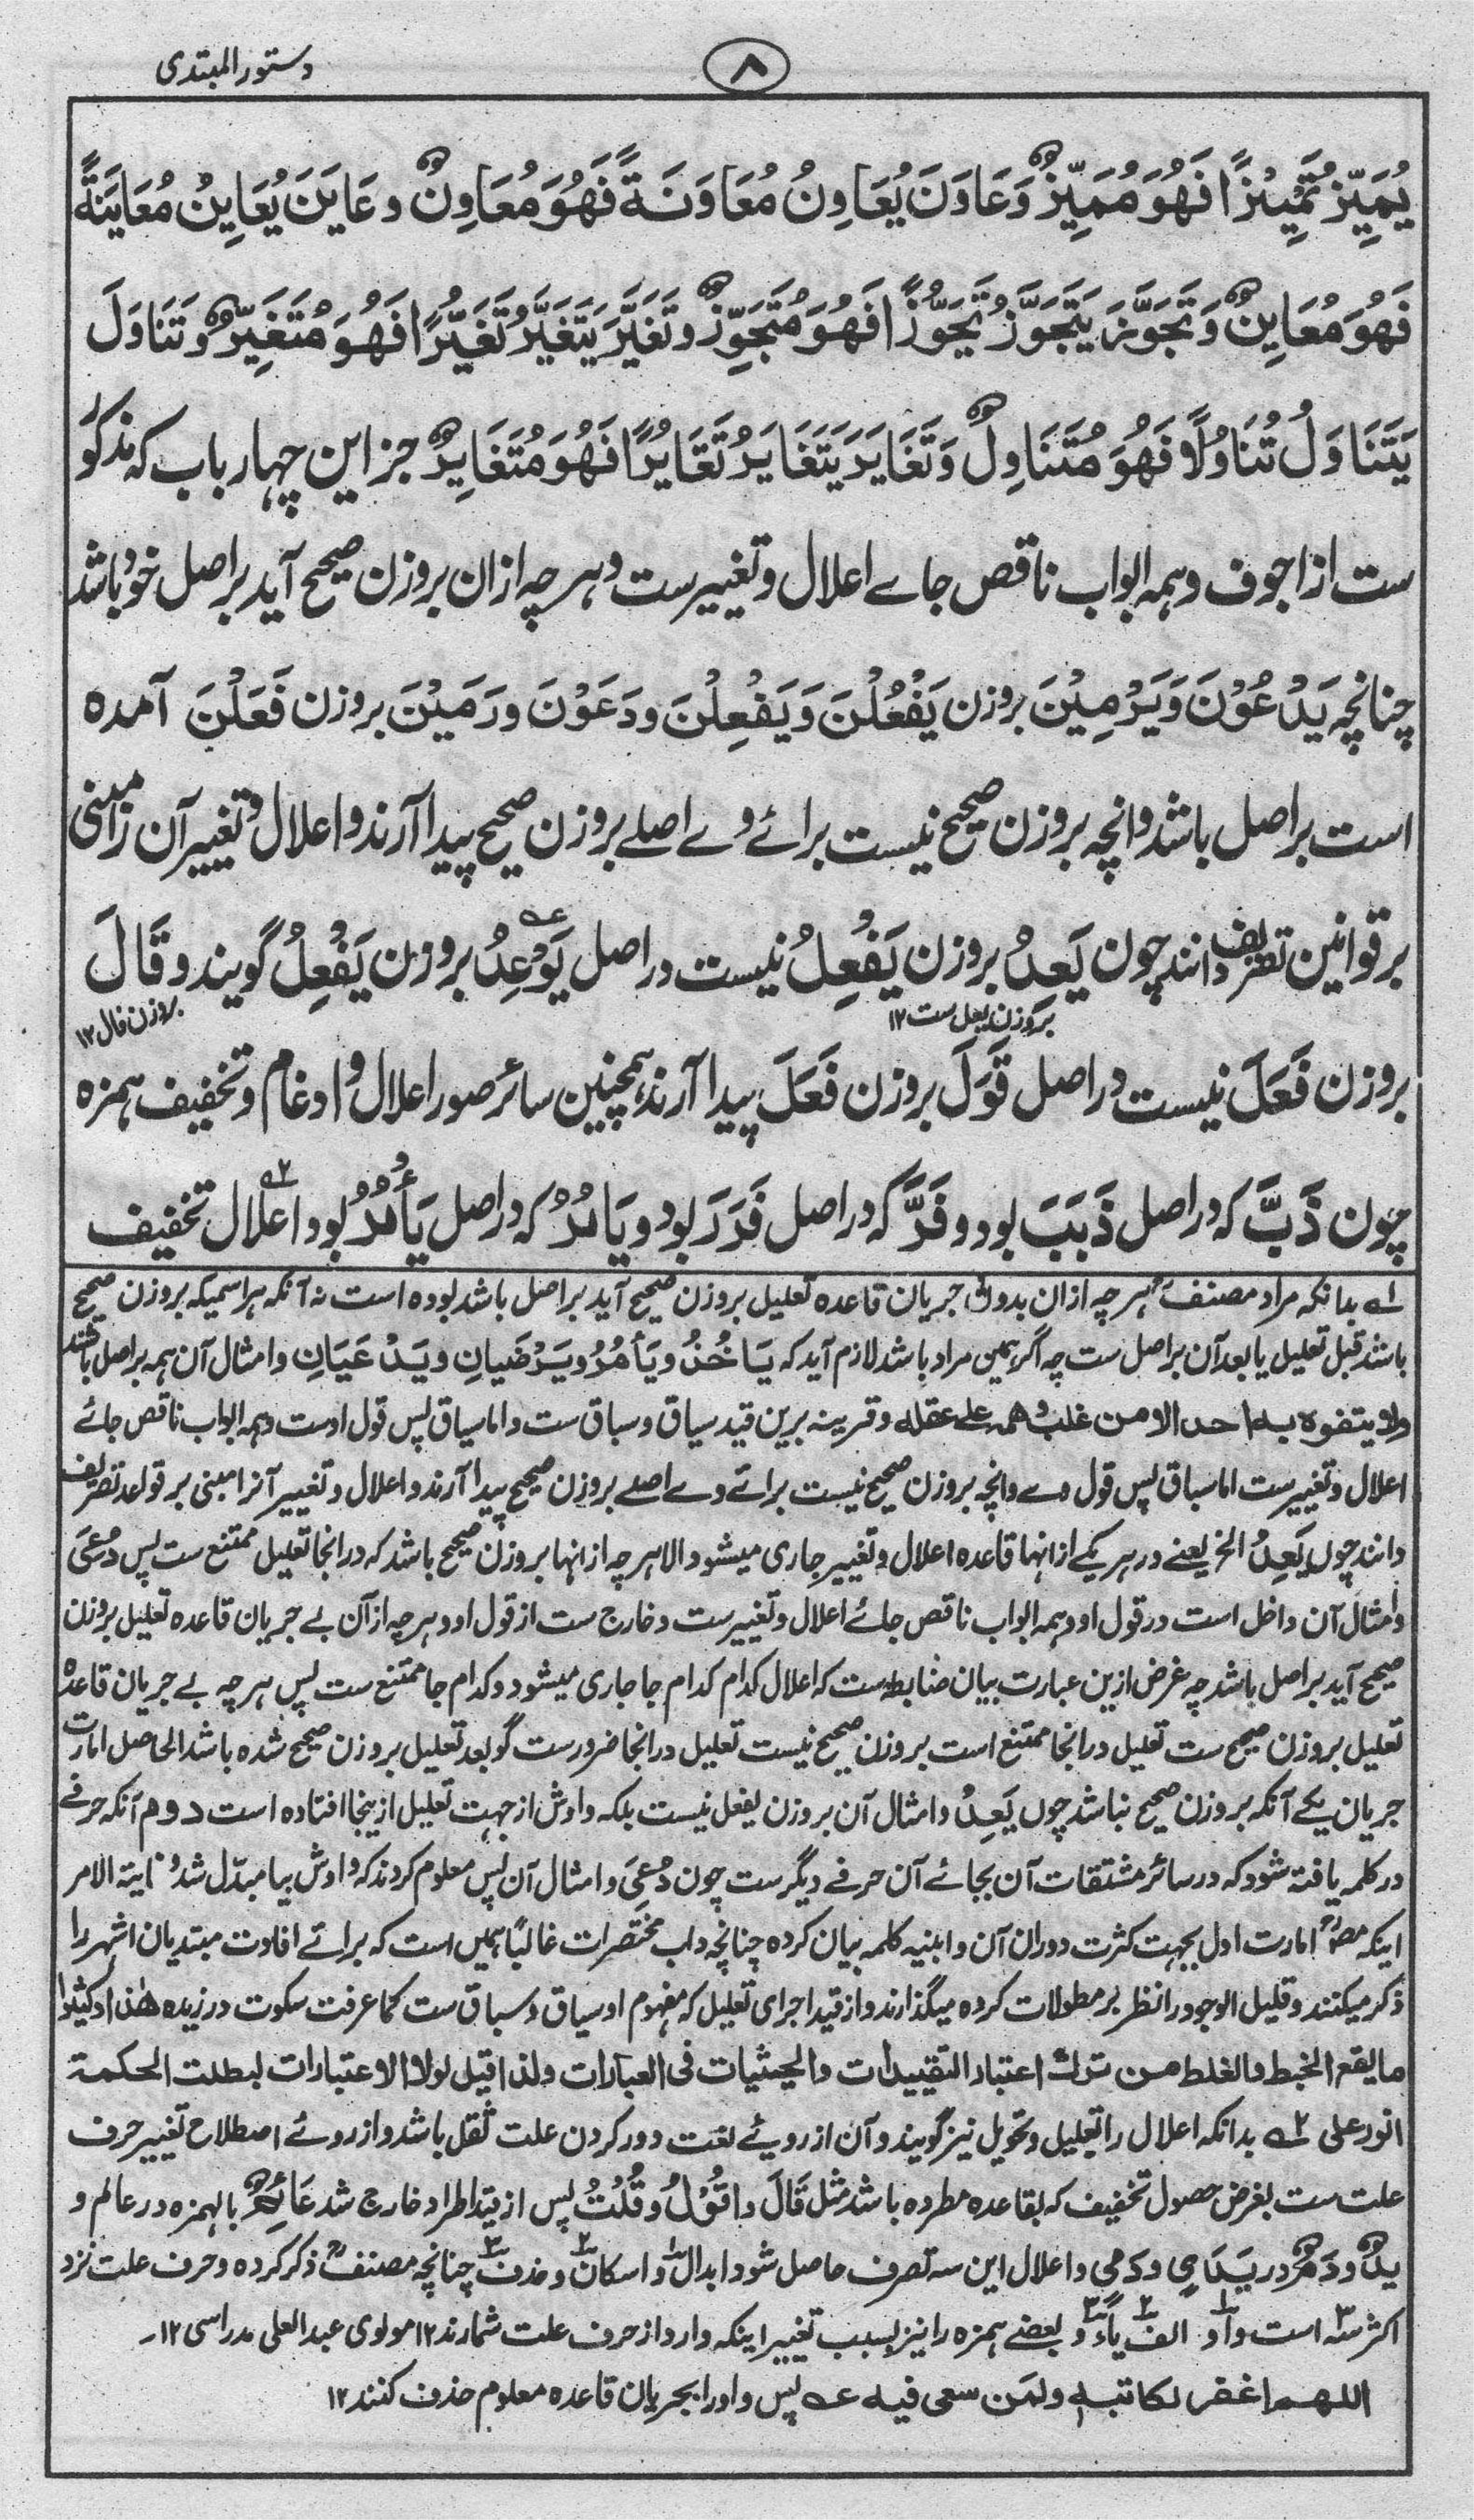 دستور المبتدی
۸
یُمَیِّزُ تَمْیِیْزًا فَهُوَ مُمَیِّزٌ وَعَاوَنَ یُعَاوِنُ مُعَاوَنَةً فَهُوَ مُعَاوِنٌ وعَایَنَ یُعَایِنُ مُعَایَنَةً
فَهُوَ مُعَایِنٌ وَتَجَوَّزَ یَتَجَوَّزُ تَجَوُّزًا فَهُوَ مُتَجَوِّزٌ وتَغَیَّرَ یَتَغَیَّرُ تَغَیُّرًا فَهُوَ مُتَغَیِّرٌ وَتَنَاوَلَ
یَتَنَاوَلُ تَنَاوُلًا فَهُوَ مُتَنَاوِلٌ وَتَغَایَرَ یَتَغَایَرُ تَغَایُرًا فَهُوَ مُتَغَایِرٌ جز این چهار باب که مذکور
ست از اجوف وہمہ ابواب ناقص جاے اعلال وتغییرست وہرچہ ازان بروزن صحیح آید براصل خود باشد
چنانچہ یَدْعُوْنَ وَیَرْمِیْنَ بروزن یَفْعُلْنَ وَیَفْعِلْنَ ودَعَوْنَ ورَمَیْنَ بروزن فَعَلْنَ آمدہ
است براصل باشد وانچہ بروزن صحیح نیست برائے وے اصلے بروزن صحیح پیدا آرند واعلال وتغییر آن را مبنی
بر قوانین تصریف دانند چون یَعِدُ بروزن یَفْعِلُ نیست دراصل یَوْعِدُ بروزن یَفْعِلُ گویند وقَالَ
بروزن یعل ست۱۲ بروزن فال۱۲
بروزن فَعَلَ نیست دراصل قَوَلَ بروزن فَعَلَ پیدا آرند ہمچنین سائر صور اعلال وادغام وتخفیف ہمزہ
چون ذَبَّ کہ دراصل ذَبَبَ بود وفَرَّ کہ دراصل فَرَرَ بود ویَامُرُ کہ دراصل یَأْمُرُ بود اعلال تخفیف
۱ بدانکہ مراد مصنفؒ ہرچہ ازان بدون جریان قاعدہ تعلیل بروزن صحیح آید براصل باشد بودہ است نہ آنکہ ہراسمیکہ بروزن صحیح
باشد قبل تعلیل یا بعد آن براصل ست چہ اگر ہمین مراد باشد لازم آید کہ یَاخُذُ ویَأمُرُ ویَرْضَیَانِ ویَدْعَیَانِ وامثال آن ہمہ براصل باشند
ولا یتفوہ بہ احد الا من غلب وہمہ علی عقلہ وقرینہ برین قید سیاق وسباق ست واما سیاق پس قول اوست وہمہ ابواب ناقص جائے
اعلال وتغییرست اما سباق پس قول وے وانچہ بروزن صحیح نیست برائے وے اصلے بروزن صحیح پیدا آرند واعلال وتغییر آنرا مبنی بر قواعد تصریف
دانند چوں یَعِدُ الخ یعنے در ہر یکے ازانہا قاعدہ اعلال وتغییر جاری میشود والا ہرچہ ازانہا بروزن صحیح باشد کہ درانجا تعلیل ممتنع ست پس دُعِیَ
وامثال آن داخل است در قول او وہمہ ابواب ناقص جائے اعلال وتغییرست وخارج ست از قول او وہرچہ ازآن بے جریان قاعدہ تعلیل بروزن
صحیح آید براصل باشد چہ غرض ازین عبارت بیان ضابطہ ست کہ اعلال کدام کدام جا جاری میشود وکدام جا ممتنع ست پس ہرچہ بے جریان قاعدہ
تعلیل بروزن صحیح ست تعلیل درانجا ممتنع است بروزن صحیح نیست تعلیل درانجا ضرورست گو بعد تعلیل بروزن صحیح شدہ باشد الحاصل امارت
جریان یکے آنکہ بروزن صحیح نباشد چوں یَعِدُ وامثال آن بروزن یفعل نیست بلکہ واوش از جہت تعلیل ازینجا افتادہ است دوم آنکہ حرفے
در کلمہ یافتہ شود کہ در سائر مشتقات آن بجائے آن حرفے دیگرست چون دُعِیَ وامثال آن پس معلوم کردند کہ واوش بیا مبدّل شد وغایۃ الامر
اینکہ مصؒ امارت اول بجہت کثرت دوران آن وابنیہ کلمہ بیان کردہ چنانچہ داب مختصرات غالبًا ہمیں است کہ برائے افادت مبتدیان اشہر را
ذکر میکنند وقلیل الوجود را نظر بر مطولات کردہ میگذارند واز قید اجرای تعلیل کہ مفہوم او سیاق وسباق ست کما عرفت سکوت ورزیدہ ھذا وکثیرا
ما یقع الخبط والغلط من ترک اعتبار التقییدات والحیثیات فی العبارات ولذا قیل لولا الاعتبارات لبطلت الحکمۃ
انور علی ۲ بدانکہ اعلال را تعلیل وتحویل نیز گویند وآن از روئے لغت دور کردن علت ثقل باشد واز روئے اصطلاح تغییر حرف
علت ست بغرض حصول تخفیف کہ بقاعدہ مطردہ باشد مثل قَالَ واقُوْلُ وقُلْتُ پس از قید اطراد خارج شد عَأْلَمٌ بالہمزہ در عالم و
یدٌ ودَمٌ در یَدَیٌ ودَمَیٌ واعلال این سہ تصرف حاصل شود ابدال واسکان وحذف چنانچہ مصنفؒ ذکر کردہ وحرف علت نزد
اکثر سہ است واو الف یاء وبعضے ہمزہ را نیز بسبب تغییر اینکہ وارد از حرف علت شمارند ۱۲ مولوی عبد العلی مدراسی ۱۲
اللہم اغفر لکاتبہ ولمن سعی فیہ عہ پس واو را بجریان قاعدہ معلوم حذف کنند ۱۲